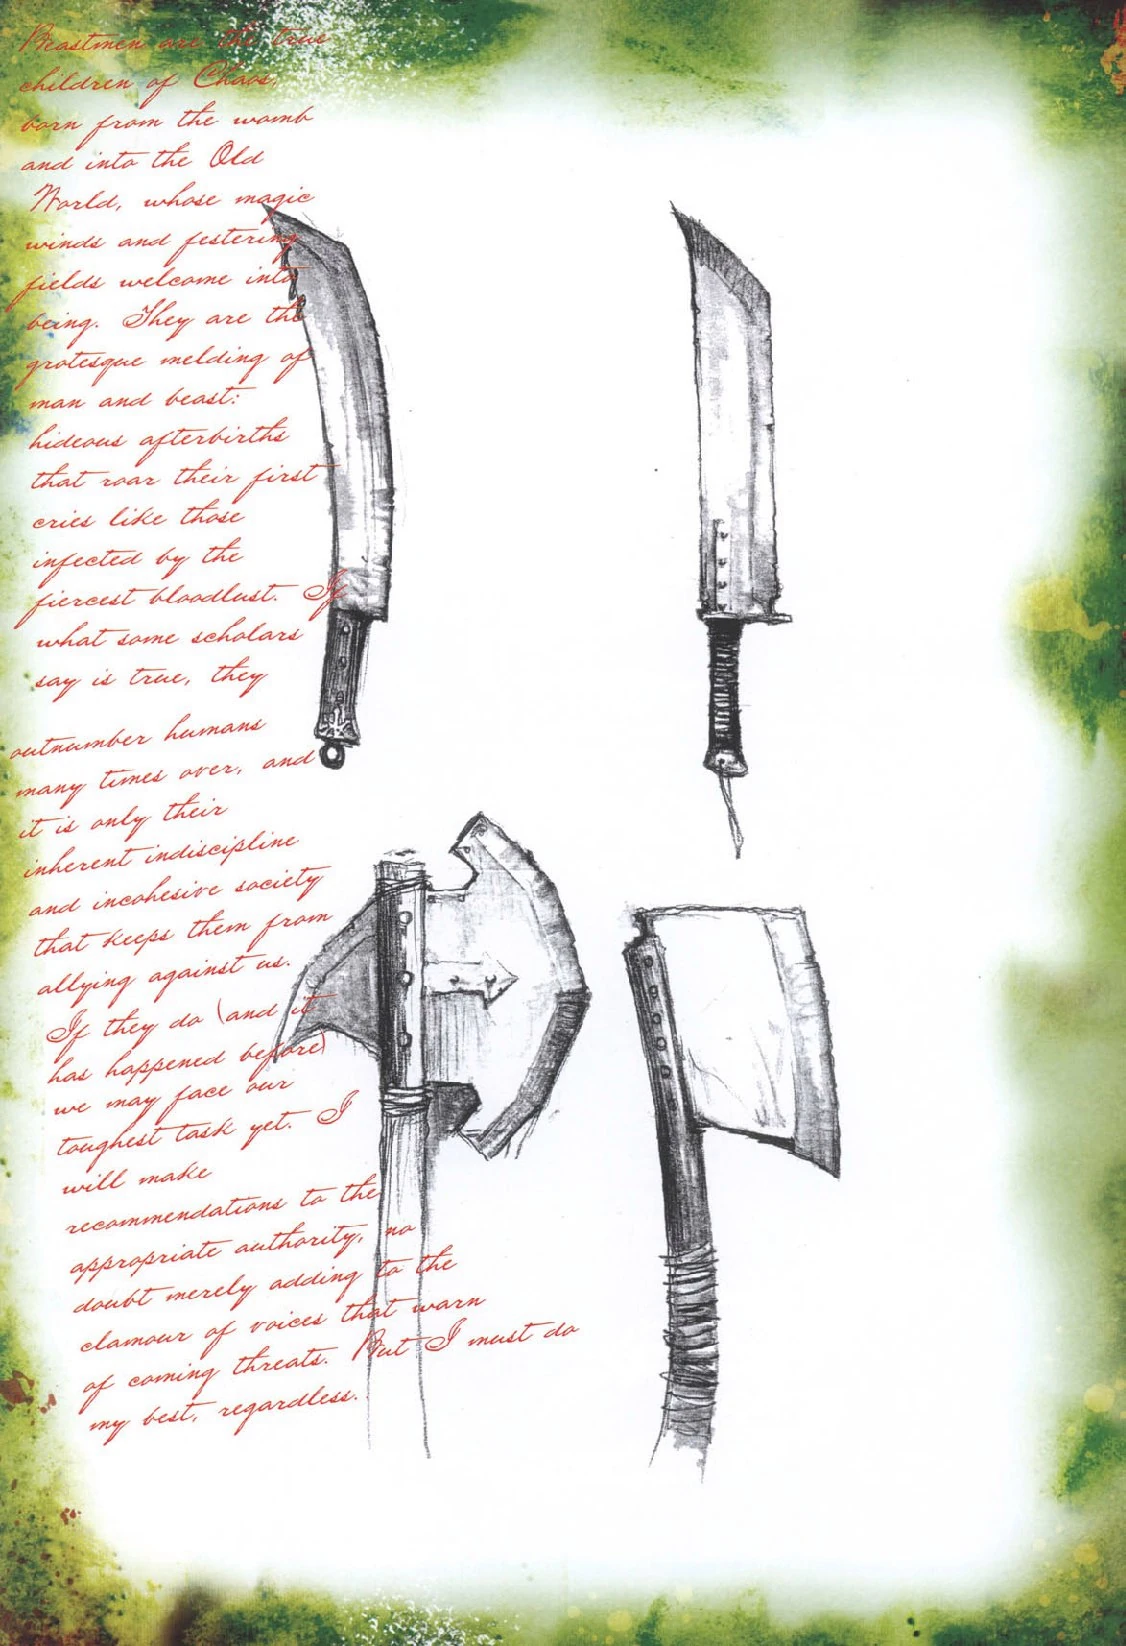 Beastmen are the true
children of Chaos,
born from the womb
and into the Old
World, whose magic
winds and festering
fields welcome into
being. They are the
grotesque melding of
man and beast:
hideous afterbirths
that roar their first
cries like those
infected by the
fiercest bloodlust. If
what some scholars
say is true, they
outnumber humans
many times over, and
it is only their
inherent indiscipline
and incohesive society
that keeps them from
allying against us.
If they do (and it
has happened before)
we may face our
toughest task yet. I
will make
recommendations to the
appropriate authority, no
doubt merely adding to the
clamour of voices that warn
of coming threats. But I must do
my best, regardless.